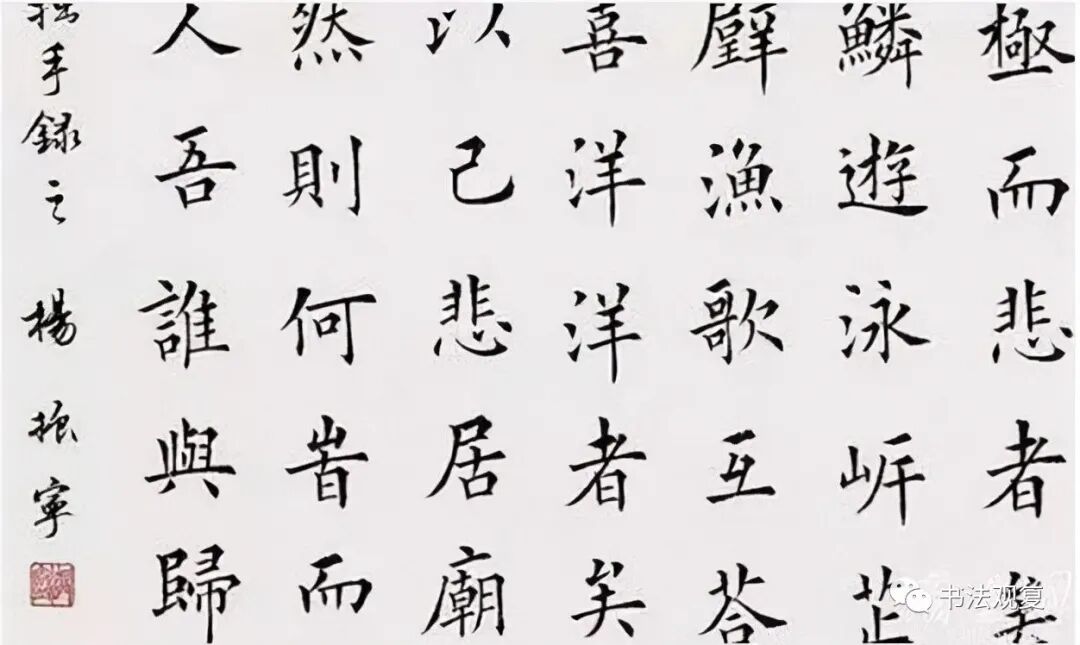 極而悲者矣
鱗遊泳岍芷
璧漁歌互荅
喜洋洋者矣
以己悲居廟
然則何旹而
人吾誰與歸
手録之 楊振寧
书法观复